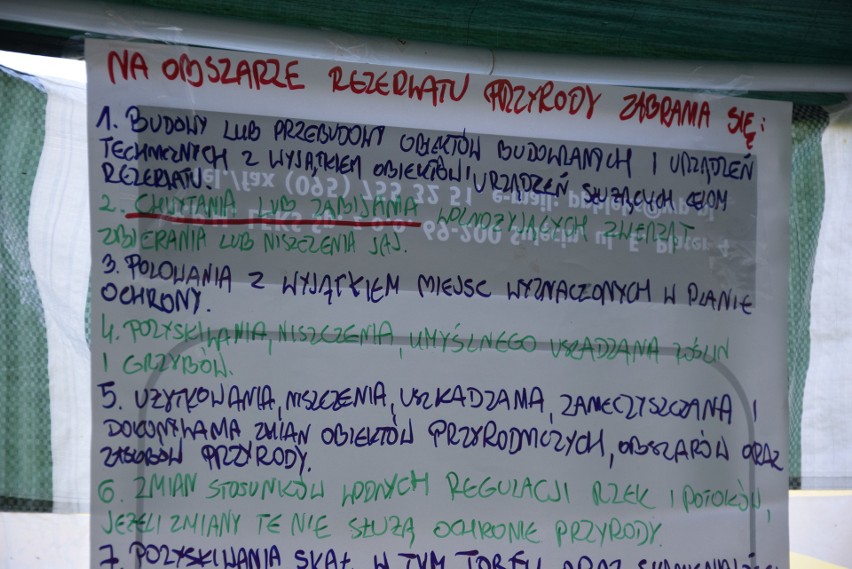 NA OBSZARZE REZERWATU PRZYRODY ZABRANIA SIĘ:
1. BUDOWY LUB PRZEBUDOWY OBIEKTÓW BUDOWLANYCH I URZĄDZEŃ
TECHNICZNYCH Z WYJĄTKIEM OBIEKTÓW I URZĄDZEŃ SŁUŻĄCYCH CELOM
REZERWATU.
2. CHWYTANIA LUB ZABIJANIA WOLNOŻYJĄCYCH ZWIERZĄT
ZBIERANIA LUB NISZCZENIA JAJ.
3. POLOWANIA Z WYJĄTKIEM MIEJSC WYZNACZONYCH W PLANIE
OCHRONY.
4. POZYSKIWANIA, NISZCZENIA, UMYŚLNEGO USZKADZANIA ROŚLIN
I GRZYBÓW.
5. UŻYTKOWANIA, NISZCZENIA, USZKADZANIA, ZANIECZYSZCZANIA I
DOKONYWANIA ZMIAN OBIEKTÓW PRZYRODNICZYCH, OBSZARÓW ORAZ
ZASOBÓW PRZYRODY.
6. ZMIAN STOSUNKÓW WODNYCH REGULACJI RZEK I POTOKÓW,
JEŻELI ZMIANY TE NIE SŁUŻĄ OCHRONIE PRZYRODY.
7. POZYSKIWANIA SKAŁ, W TYM TORFU ORAZ